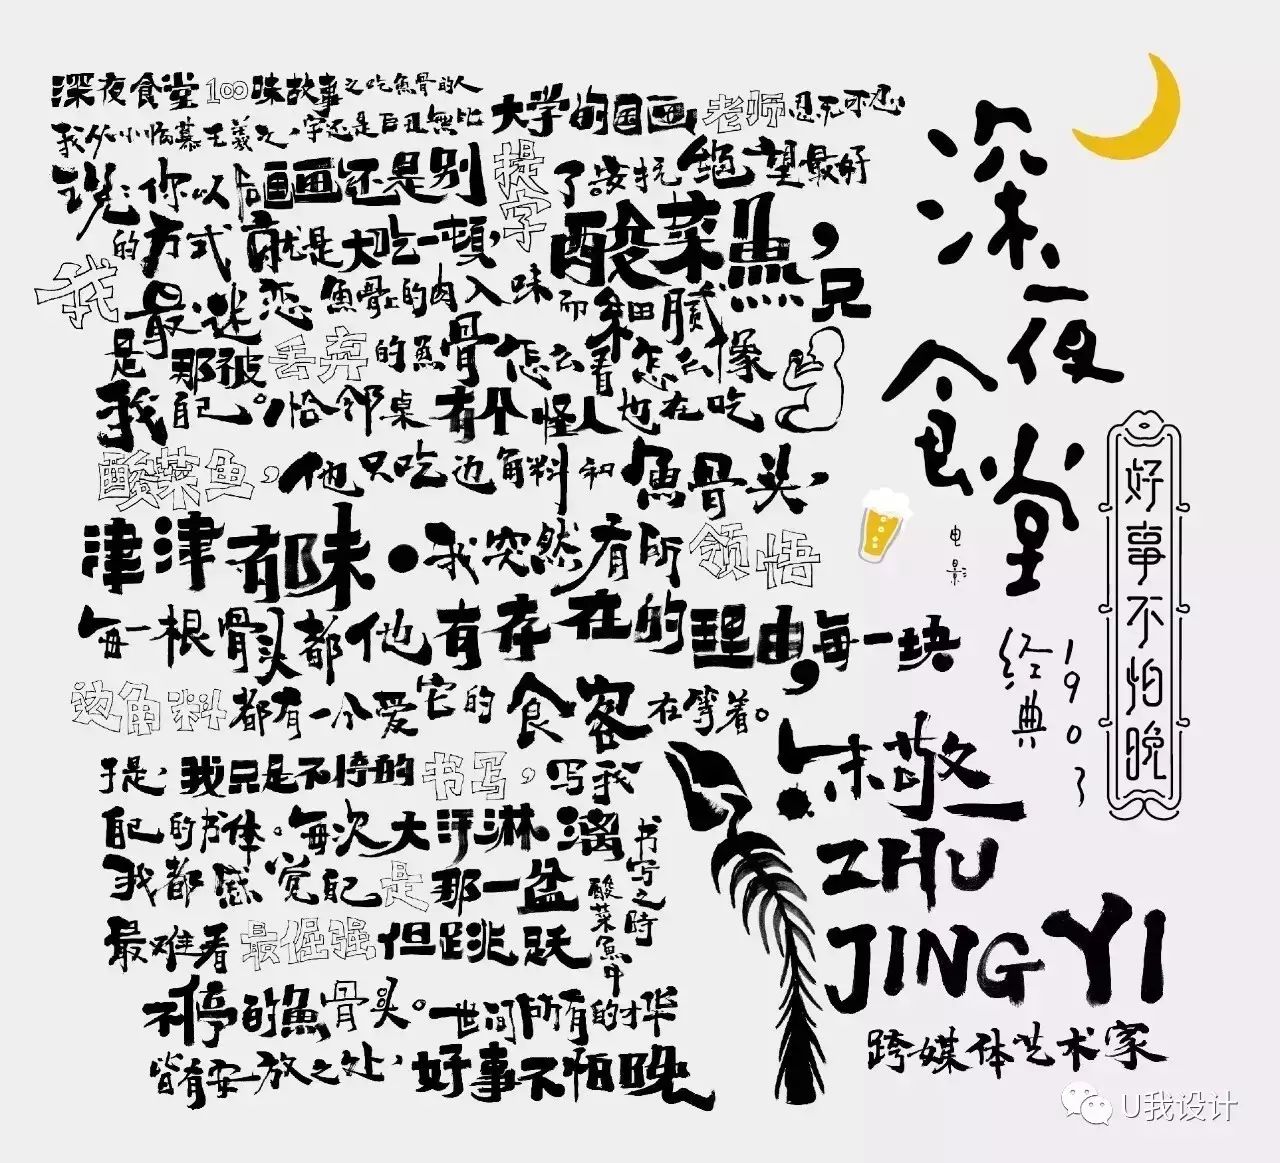 深夜食堂100味故事之吃魚骨的人
我从小临慕王羲之,字还是丑丑無比
大学的国画老师忍无可忍
说:你以后画画还是别提字了。抗绝望最好
的方式就是大吃一顿,酸菜魚,只
我最迷恋魚骨上的肉入味而细腻
是那被丢弃的魚骨怎么看怎么像
我自己。恰邻桌有个怪人也在吃
酸菜鱼,他只吃边角料和魚骨头,
津津有味。我突然有所领悟
每一根骨头都他有存在的理由,每一块
边角料都有一个爱它的食客在等着。
于是,我只是不停的书写,写我
自己的书体。每次大汗淋漓
我都感觉自己是那一盆
最难看最倔强但跳跃
不停的魚骨头。世间所有的才华
皆有安放之处,好事不怕晚
书写之時
酸菜魚中
深夜食堂
电影
经典
1903
好事不怕晚
朱敬一
ZHU
JING YI
跨媒体艺术家
U我设计